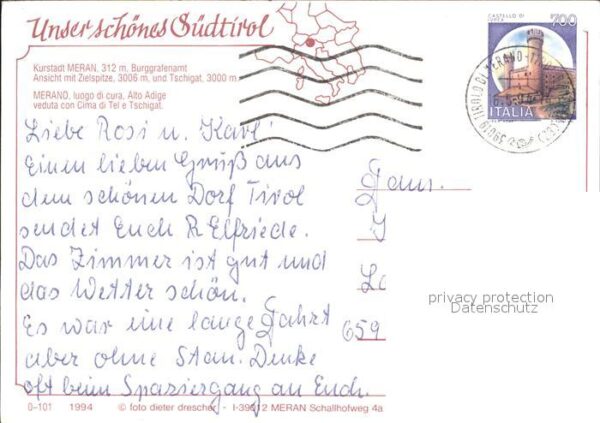 Unser schönes Südtirol
Kurstadt MERAN, 312 m, Burggrafenamt
Ansicht mit Zielspitze, 3006 m, und Tschigat, 3000 m
MERANO, luogo di cura, Alto Adige
veduta con Cima di Tel e Tschigat
CASTELLO DI
700
ITALIA
Liebe Rosi u. Karl!
Einen lieben Gruß aus
dem schönen Dorf Tirol
sendet Euch R Elfriede.
Das Zimmer ist gut und
das Wetter schön.
Es war eine lange Fahrt
aber ohne Stau. Denke
oft beim Spaziergang an Euch.
659
privacy protection
Datenschutz
0-101 1994 © foto dieter drescher - I-39012 MERAN Schallhofweg 4a